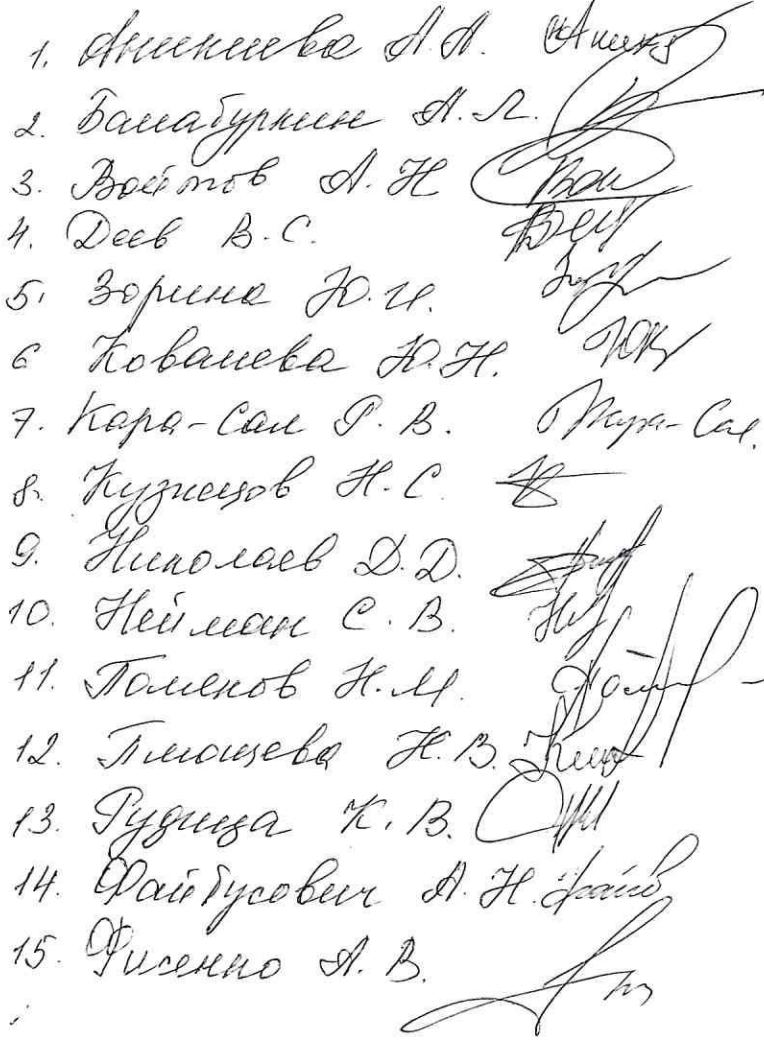 1. Аникиева А.А.
2. Балабуркин А.Л.
3. Войтов А.Н
4. Деев В.С.
5. Зорина Ю.И.
6 Ковалева Ю.Н.
7. Кара-Сал Р.В. Кара-Сал.
8. Кузнецов Н.С.
9. Николаев Д.Д.
10. Нейман С.В.
11. Поленов Н.М.
12. Н.В.
13. Рудица К.В.
14. Файбусович А.Н.
15. Фисенко А.В.